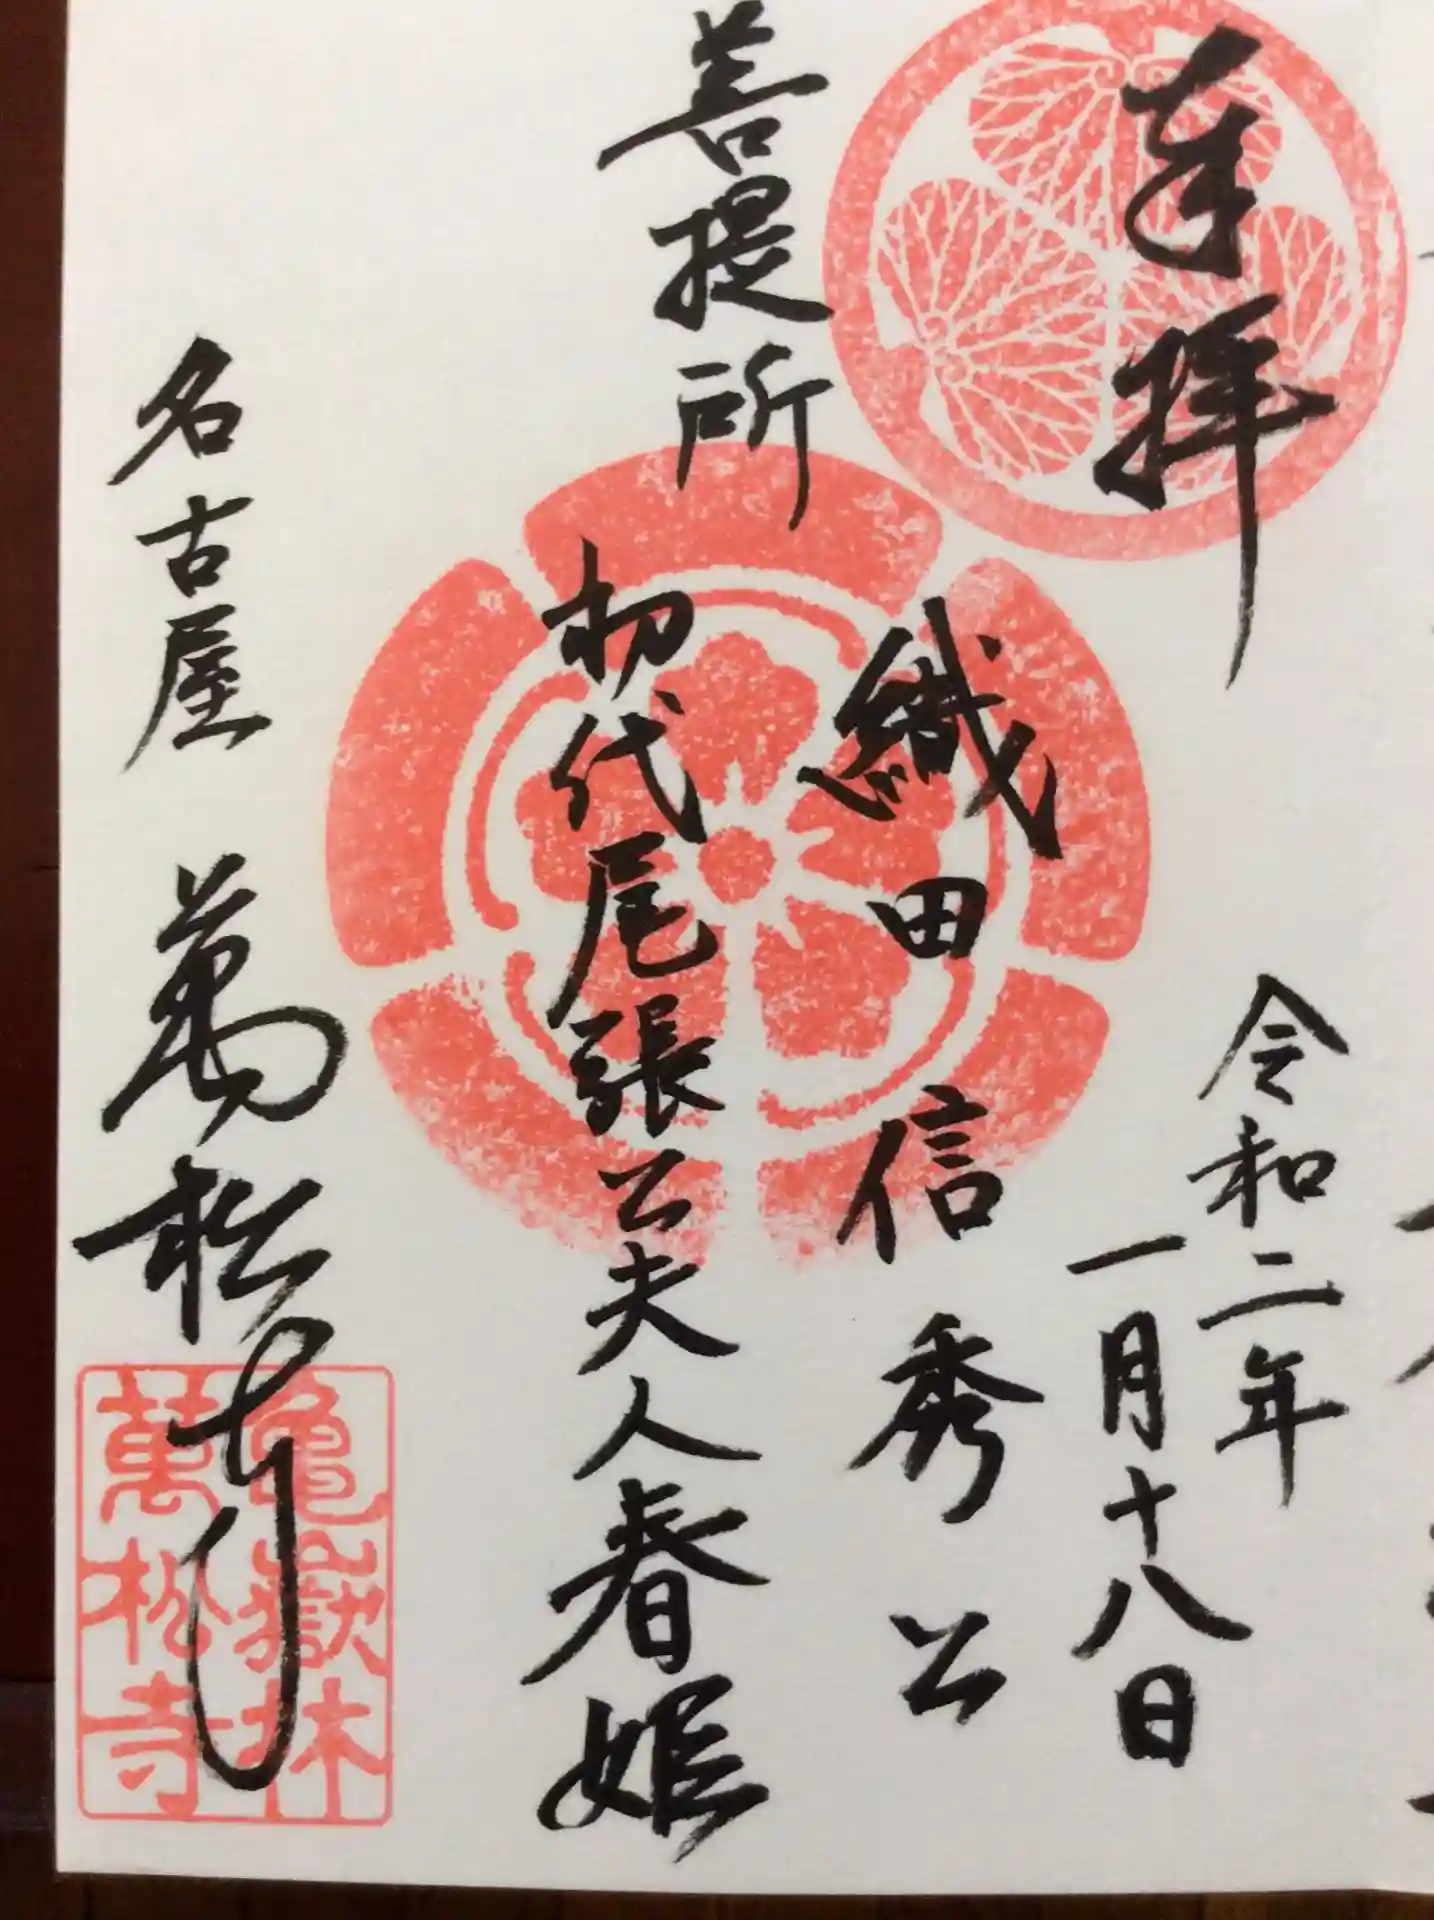 奉拝
令和二年
一月十八日
織田信秀公
菩提所
初代尾張公夫人春姫
名古屋
萬松寺
亀嶽林
萬松寺